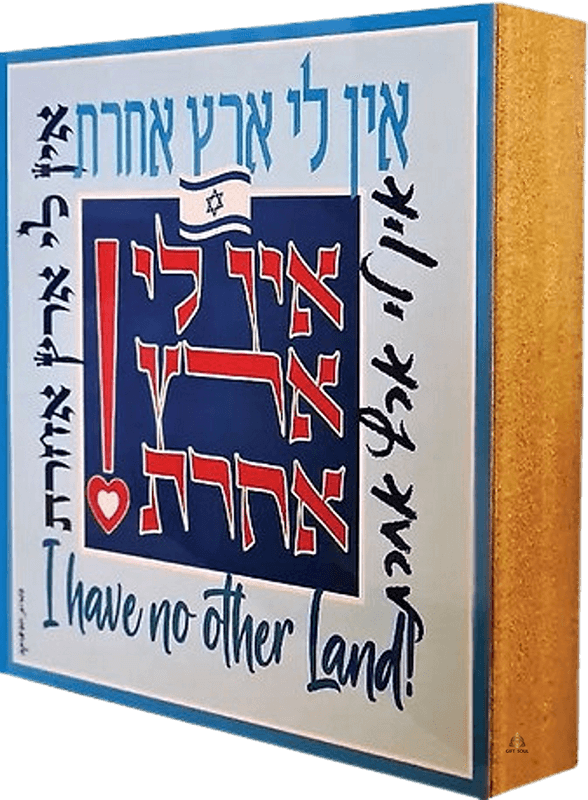 אין לי ארץ אחרת
אין לי ארץ אחרת
אין לי
ארץ
אחרת!
אין לי ארץ אחרת
I have no other Land!
GIFT SOUL